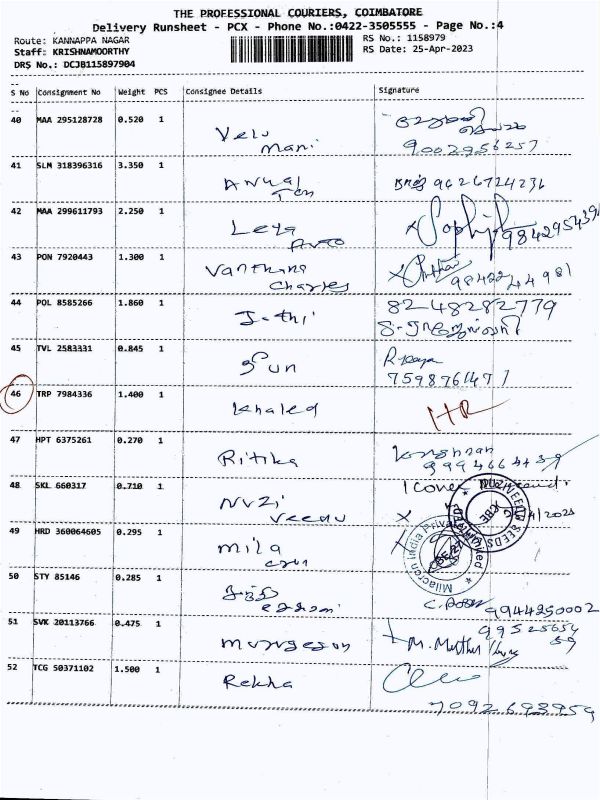 THE PROFESSIONAL COURIERS, COIMBATORE
Delivery Runsheet - PCX - Phone No.:0422-3505555 - Page No.:4
Route: KANNAPPA NAGAR
RS No.: 1158979
Staff: KRISHNAMOORTHY
RS Date: 25-Apr-2023
DRS No.: DCJB115897904
S No Consignment No Weight PCS Consignee Details Signature
40 MAA 295128728 0.520 1
Velu
Mani
9002956257
41 SLM 318396316 3.350 1
9626724236
42 MAA 299611793 2.250 1
Leya
Auto
Sophi
9842954391
43 PON 7920443 1.300 1
Vanthana
Charles
98422 44981
44 POL 8585266 1.860 1
Jothi
8248282779
45 TVL 2583331 0.845 1
7598761471
46 TRP 7984336 1.400 1
Khaled
47 HPT 6375261 0.270 1
Ritika
9994664439
48 SKL 660317 0.710 1
Nuzi
Veedu
1 Cover
NUZIVEEDU SEEDS
CBE
49 HRD 360064605 0.295 1
Mila
cron
Milacron India Private Limited
50 STY 85146 0.285 1
9944250002
51 SVK 20113766 0.475 1
Murugesan
M. Muthu
52 TCG 50371102 1.500 1
Rekha
7092693959